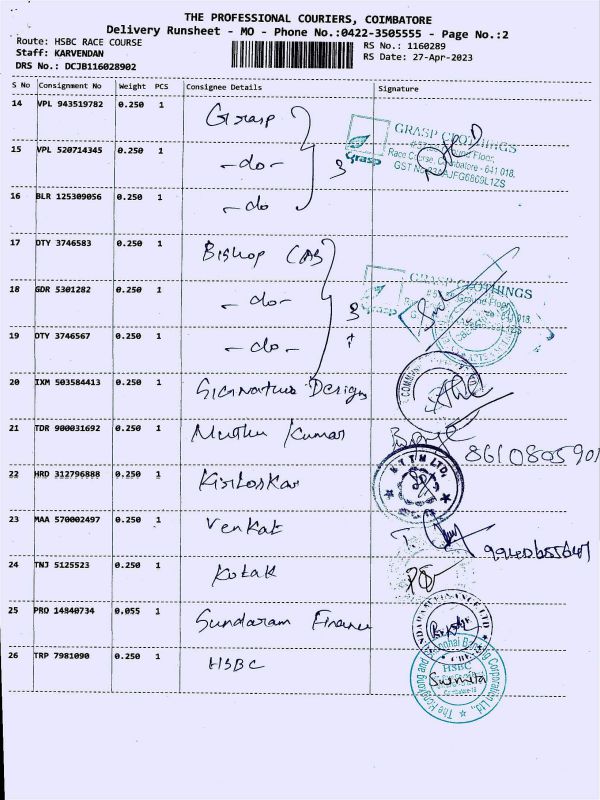 THE PROFESSIONAL COURIERS, COIMBATORE
Delivery Runsheet - MO - Phone No.:0422-3505555 - Page No.:2
Route: HSBC RACE COURSE
Staff: KARVENDAN
DRS No.: DCJB116028902
RS No.: 1160289
RS Date: 27-Apr-2023
S No Consignment No Weight PCS Consignee Details Signature
14 VPL 943519782 0.250 1 Grasp
15 VPL 520714345 0.250 1 -do- 3
16 BLR 125309056 0.250 1 -do
Grasp
GRASP CLOTHINGS
Ground Floor,
Race Course, Coimbatore - 641 018.
17 DTY 3746583 0.250 1 Bishop
18 GDR 5301282 0.250 1 -do- 3
19 DTY 3746567 0.250 1 -do-
GRASP CLOTHINGS
20 IXM 503584413 0.250 1 Signature Design
21 TDR 900031692 0.250 1 Muthu Kumar
8610805901
22 HRD 312796888 0.250 1 Kirloskar
23 MAA 570002497 0.250 1 Venkat
24 TNJ 5125523 0.250 1 Kotak
25 PRO 14840734 0.055 1 Sundaram Finance
SUNDARAM FINANCE LTD
26 TRP 7981090 0.250 1 HSBC
HSBC
The Hongkong and Shanghai Banking Corporation Ltd.